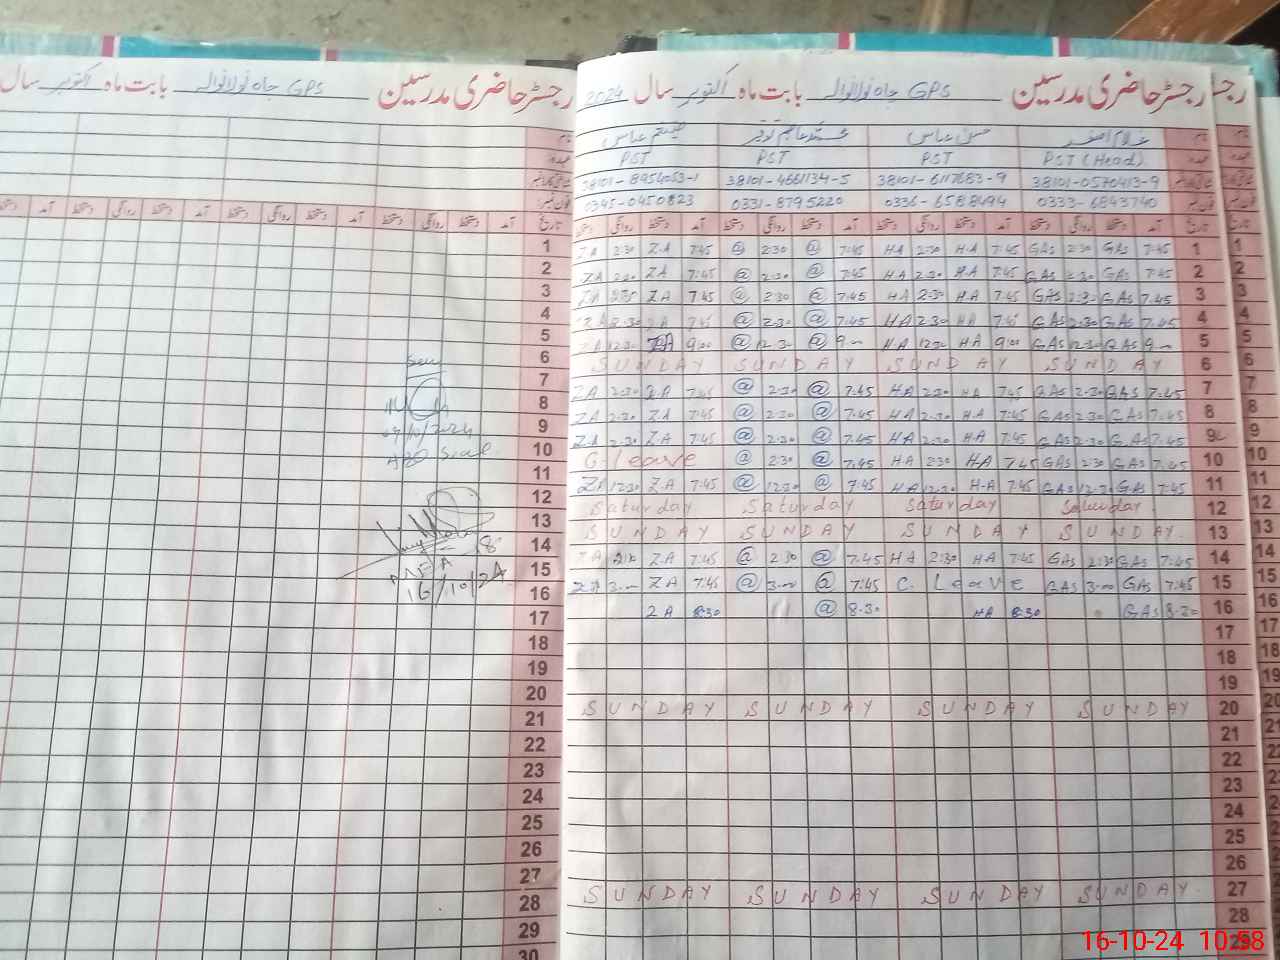 رجسٹر حاضری مدرسین GPS چاہ نولانوالہ بابت ماہ اکتوبر سال
نام
عہدہ
تاریخ آمد دستخط روانگی دستخط آمد دستخط روانگی دستخط آمد دستخط روانگی دستخط
1
2
3
4
5
6
7
8
9
10
11
12
13
14
15
16
17
18
19
20
21
22
23
24
25
26
27
28
29
30
Seen
16/10/24
رجسٹر حاضری مدرسین GPS چاہ نولانوالہ بابت ماہ اکتوبر سال 2024
نام غلام اصغر حسن عباس
عہدہ PST (Head) PST PST PST
38101-0570413-9 38101-6117683-9 38101-4661134-5 38101-8954053-1
فون نمبر 0333-6843740 0336-6588494 0331-8795220 0345-0450823
تاریخ آمد دستخط روانگی دستخط آمد دستخط روانگی دستخط آمد دستخط روانگی دستخط آمد دستخط روانگی دستخط
ZA 2:30 ZA 7:45 @ 2:30 @ 7:45 HA 2:30 HA 7:45 GAS 2:30 GAS 7:45 1
ZA 2:30 ZA 7:45 @ 2:30 @ 7:45 HA 2:30 HA 7:45 GAS 2:30 GAS 7:45 2
ZA ZA 7:45 @ 2:30 @ 7:45 HA 2:30 HA 7:45 GAS 2:30 GAS 7:45 3
ZA 2:30 ZA 7:45 @ 2:30 @ 7:45 HA 2:30 HA 7:45 GAS 2:30 GAS 7:45 4
ZA 12:30 ZA 9:00 @ 12:30 @ 9:00 HA 12:30 HA 9:00 GAS 12:30 GAS 9:00 5
SUNDAY SUNDAY SUNDAY SUNDAY 6
ZA 2:30 ZA 7:45 @ 2:30 @ 7:45 HA 2:30 HA 7:45 GAS 2:30 GAS 7:45 7
ZA 2:30 ZA 7:45 @ 2:30 @ 7:45 HA 2:30 HA 7:45 GAS 2:30 GAS 7:45 8
ZA 2:30 ZA 7:45 @ 2:30 @ 7:45 HA 2:30 HA 7:45 GAS 2:30 GAS 7:45 9
C. leave @ 2:30 @ 7:45 HA 2:30 HA 7:45 GAS 2:30 GAS 7:45 10
ZA 12:30 ZA 7:45 @ 12:30 @ 7:45 HA 12:30 HA 7:45 GAS 12:30 GAS 7:45 11
Saturday Saturday Saturday Saturday 12
SUNDAY SUNDAY SUNDAY SUNDAY 13
ZA ZA 7:45 @ 2:30 @ 7:45 HA 2:30 HA 7:45 GAS 2:30 GAS 7:45 14
ZA 3:00 ZA 7:45 @ 3:00 @ 7:45 C. Leave GAS 3:00 GAS 7:45 15
ZA 8:30 @ 8:30 HA 8:30 GAS 8:30 16
17
18
19
SUNDAY SUNDAY SUNDAY SUNDAY 20
21
22
23
24
25
26
SUNDAY SUNDAY SUNDAY SUNDAY 27
28
29
16-10-24 10:58